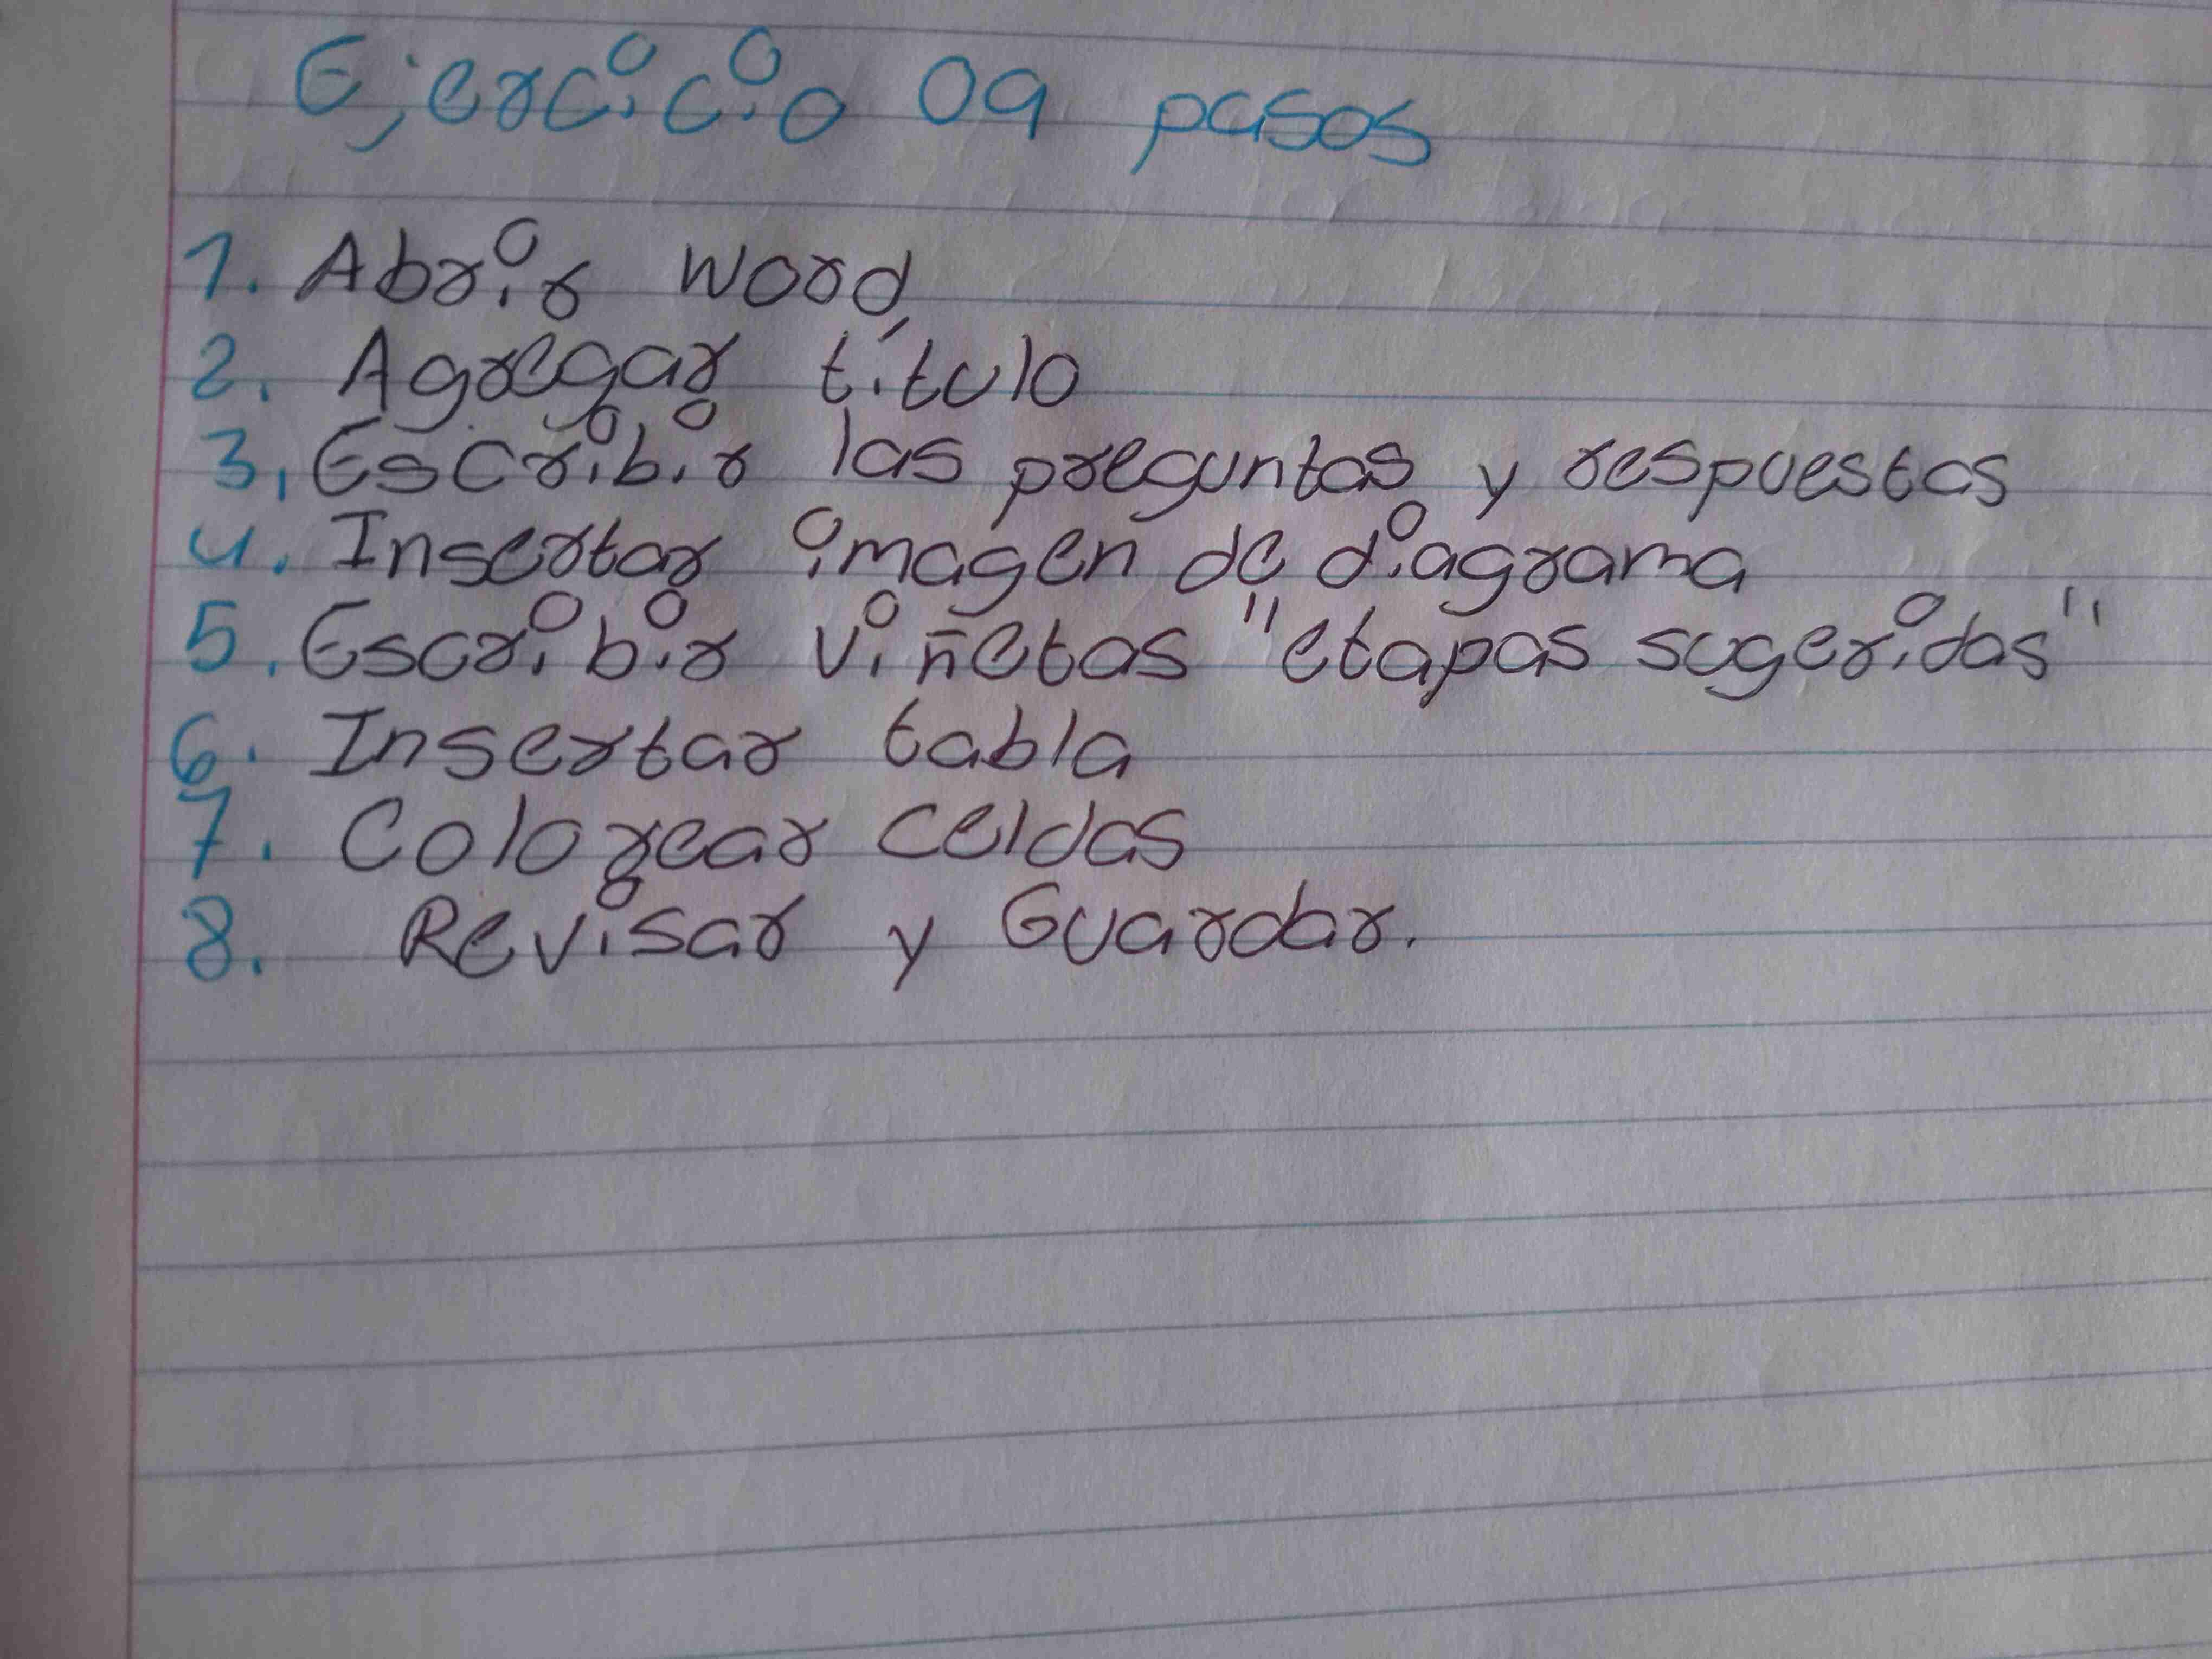 Ejercicio 09 pasos
1. Abrir Word
2. Agregar título
3. Escribir las preguntas y respuestas
4. Insertar imagen de diagrama
5. Escribir viñetas "etapas sugeridas"
6. Insertar tabla
7. Colorear celdas
8. Revisar y Guardar.